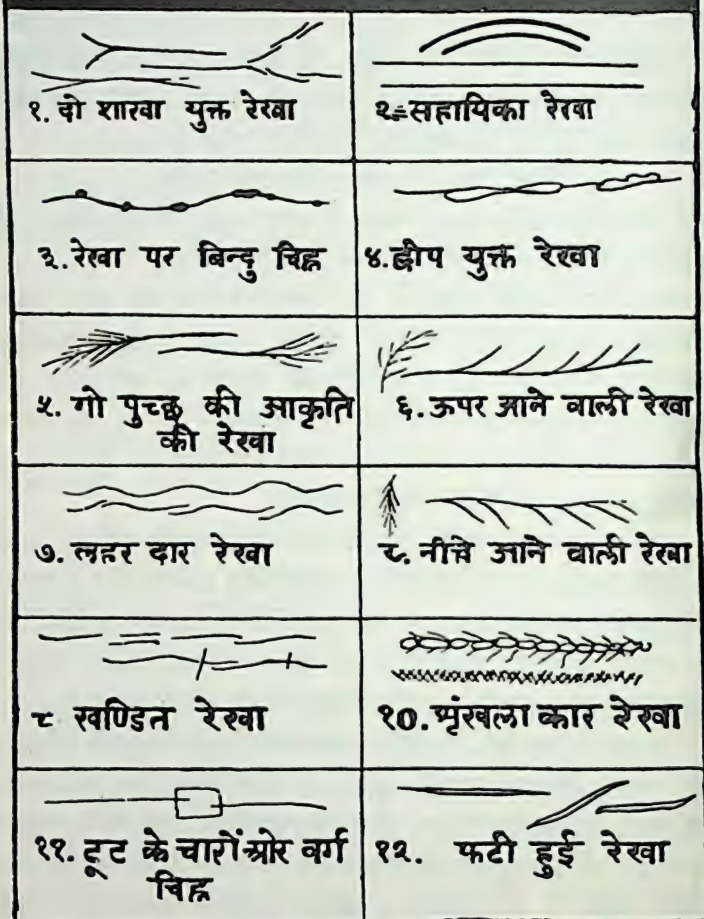 १. दो शाखा युक्त रेखा
२=सहायिका रेखा
३. रेखा पर बिन्दु चिह्न
४. द्वीप युक्त रेखा
५. गो पुच्छ की आकृति
की रेखा
६. ऊपर आने वाली रेखा
७. लहर दार रेखा
८. नीचे आने वाली रेखा
९ खण्डित रेखा
१०. शृंखला कार रेखा
११. टूट के चारों ओर वर्ग
चिह्न
१२. फटी हुई रेखा